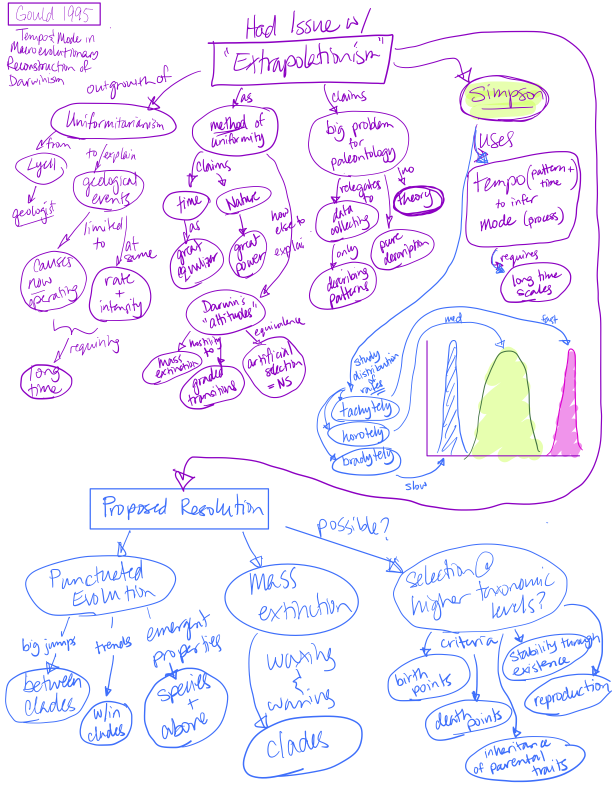 Gould 1995
Tempo & Mode in
Macroevolutionary
Reconstruction of
Darwinism
Had Issue w/
"Extrapolationism"
outgrowth of
Uniformitarianism
from
Lyell
geologist
to/explain
geological
events
limited
to
causes
now
operating
at
same
rate
+
intensity
requiring
long
time
as
method of
uniformity
claims
time
as
great
equalizer
Nature
great
power
how
else to
explain
Darwin's
"attitudes"
mass
extinction
hostility
to
graded
transitions
equivalence
artificial
selection
= NS
claims
big problem
for
paleontology
relegates
to
data
collecting
only
describing
patterns
no
theory
pure
description
Simpson
uses
tempo (pattern +
time)
to infer
mode (process)
requires
long time
scales
study
distribution
of
rates
tachytely
horotely
bradytely
slow
med
fast
Proposed Resolution
Punctuated
Evolution
big jumps
between
clades
trends
w/in
clades
emergent
properties
species
+
above
mass
extinction
waxing
&
waning
clades
possible?
Selection @
higher taxonomic
levels?
criteria
birth
points
death
points
inheritance
of parental
traits
stability through
existence
reproduction